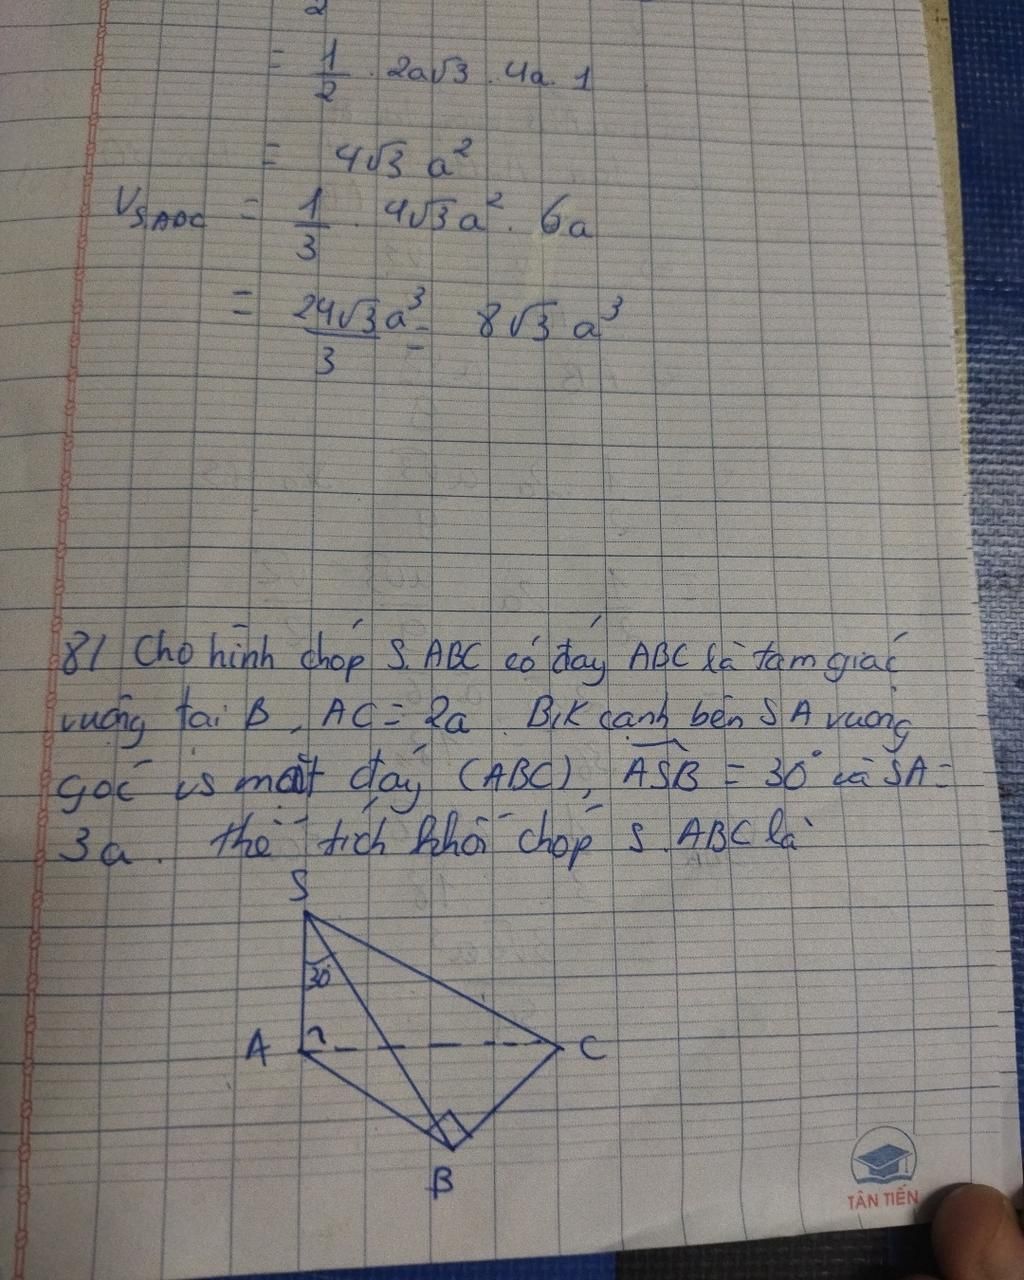 2
= 1/2 . 2a√3 . 4a . 1
= 4√3 a²
V S.ABC = 1/3 . 4√3a² . 6a
= 24√3a³/3 = 8√3 a³
8/ Cho hình chóp S.ABC có đáy ABC là tam giác
vuông tại B, AC = 2a. B,K cạnh bên SA vuông
góc vs mặt đáy (ABC), ASB = 30° và SA =
3a. thể tích khối chóp S.ABC là
S
30°
A
C
B
TÂN TIẾN